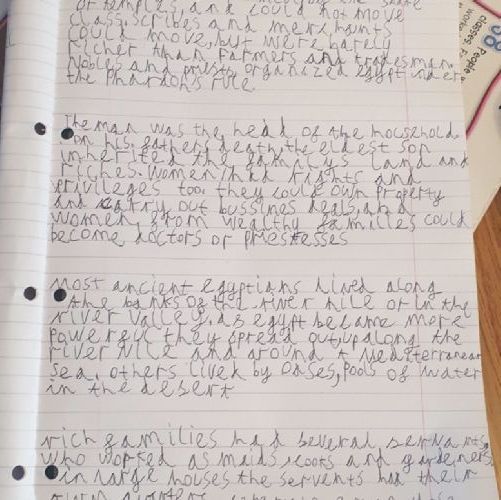 or temples, and could not move
class, scribes and merchants
could move, but were barely
richer than farmers and tradesman.
Nobles and priests organized egypt under
the Pharaohs rule.
The man was the head of the household.
on his fathers death, the eldest son
inherited the familys land and
riches. Women had rights and
privileges too. they could own property
and carry out bussines deals, and
women from wealthy families could
become doctors or priestesses
Most ancient egyptians lived along
the banks of the river nile or in the
river valley, as egypt became more
powerful they spread out, up along the
river Nile and around Mediterranean
sea. others lived by oases, pools of water
in the desert
rich families had several servants
who worked as maids, cooks and gardeners
in large houses the servents had their
People
classes, F
worke